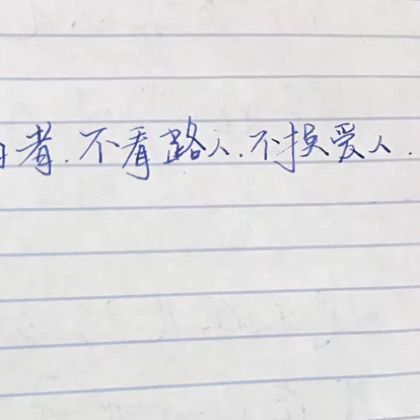 者.不看路人.不损爱人.